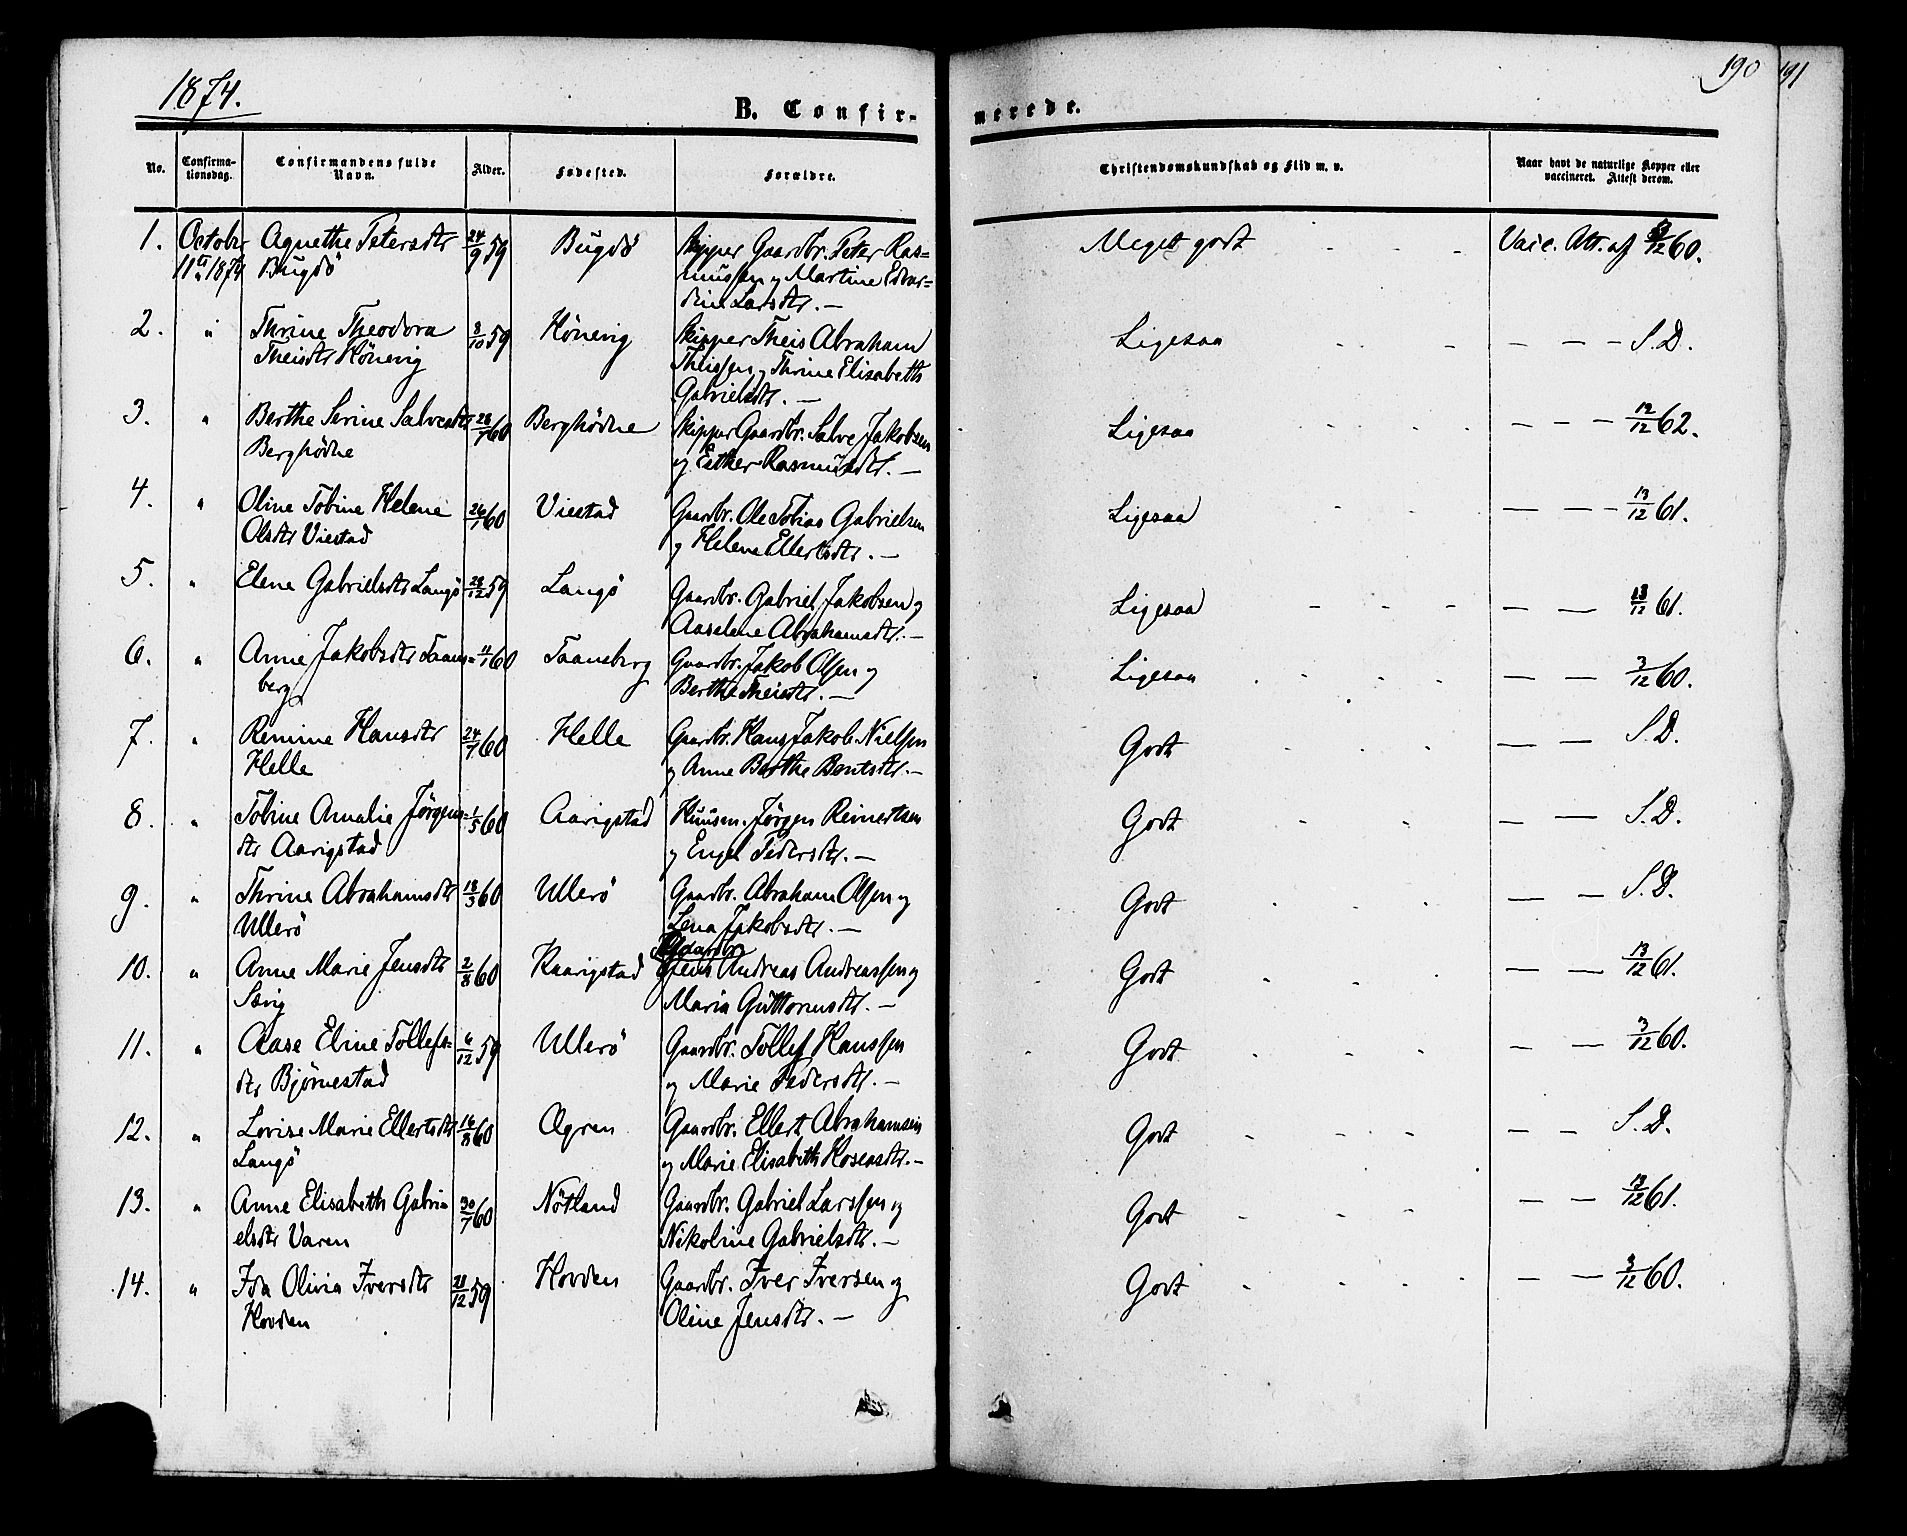 1874.
190
191
B. Confir-
merede.
No.
Confirma-
tionsdag.
Confirmandens fulde
Navn.
Alder.
Fødested.
Forældre.
Christendomskundskab og Flid m. v.
Naar havt de naturlige Kopper eller
vaccineret. Attest derom.
1. October Agnethe Petersdtr 24/9 59 Bugdö Skipper Gaardbr. Peter Ras= Meget godt Vacc. Att. af /12 60.
11te 1874 Bugdö mussen og Martine Edvar=
dine Larsdtr. —
2. " Thrine Theodora 8/10 59 Hönevig Skipper Theis Abraham Ligesaa — — — S.D.
Theisdtr Hönevig Theissen og Thrine Elisabeth
Gabrielsdtr. —
3. " Berthe Serine Salvesdtr 28/1 60 Berghödne Skipper Gaardbr. Salve Jakobsen Ligesaa — — — 12/12 62.
Berghödne og Esther Rasmusdtr. —
4. " Oline Tobine Helene 26/1 60 Viestad Gaardbr. Ole Tobias Gabrielsen Ligesaa — — — 13/12 61.
Olsdtr Viestad og Helene Ellertsdtr. —
5. " Elene Gabrielsdtr Langö 28/12 59 Langö Gaardbr. Gabriel Jakobsen og Ligesaa — — 13/12 61.
Aaselene Abrahamsdtr. —
6. " Anne Jakobsdtr Faans= 11/1 60 Faansberg Gaardbr. Jakob Olsen og Ligesaa — — 3/12 60.
berg Berthe Theisdtr. —
7. " Remine Hansdtr 24/1 60 Helle Gaardbr. Hans Jakob Nielsen Godt — — S.D.
Helle og Anne Berthe Bentsdtr. —
8. " Tobine Amalie Jörgens= 1/5 60 Aarigstad Huusm. Jörgen Reinertsen Godt — — S.D.
dtr Aarigstad og Engel Pedersdtr. —
9. " Thrine Abrahamsdtr 18/3 60 Ullerö Gaardbr. Abraham Olsen og Godt — — S.D.
Ullerö Lena Jakobsdtr. —
Gaardbr.
10. " Anne Marie Jensdtr 2/8 60 Kaarigstad Jens Andreas Andreassen og Godt — — 13/12 61.
Særig Maria Guttormsdtr. —
11. " Aase Eline Tollefs= 6/12 59 Ullerö Gaardbr. Tollef Hanssen Godt — — 3/12 60.
dtr Bjørnestad og Marie Pedersdtr. —
12. " Lovise Marie Ellertsdtr 16/8 60 Ogren Gaardbr. Ellert Abrahamsen Godt — — S.D.
Langö og Marie Elisabeth Hoseasdtr. —
13. " Anne Elisabeth Gabri= 30/7 60 Nötland Gaardbr. Gabriel Larssen og Godt — — 13/12 61.
elsdtr Varen Nikoline Gabrielsdtr. —
14. " Ida Olivia Iversdtr 21/12 59 Hovden Gaardbr. Iver Iversen og Godt — — 3/12 60.
Hovden Oline Jensdtr. —